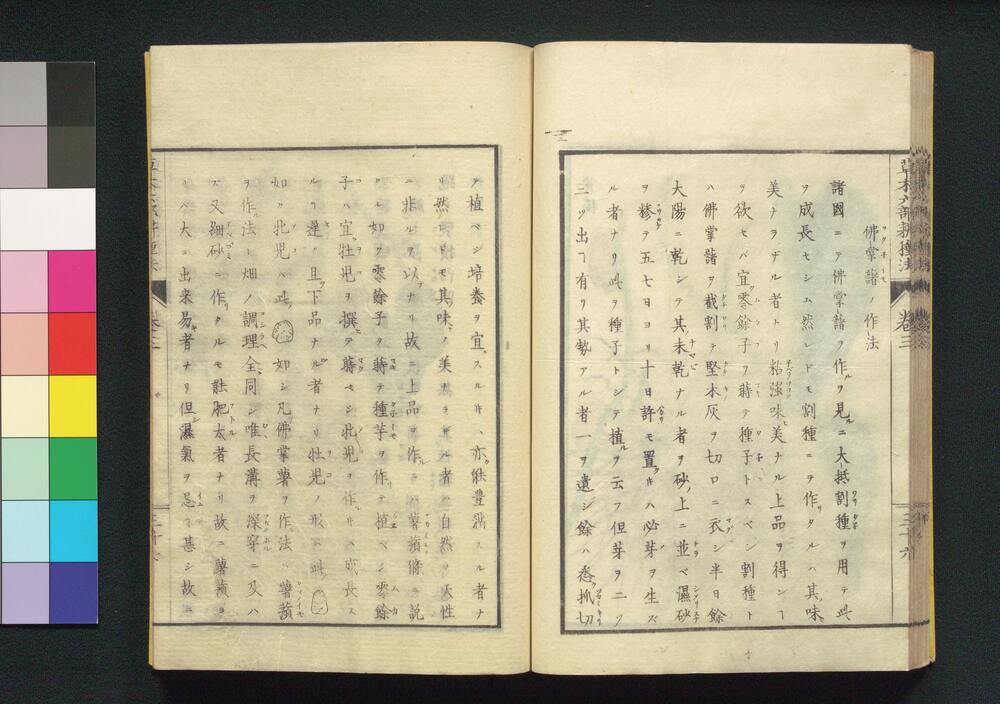 佛掌藷ノ作法
諸國ニテ佛掌藷ヲ作ルヲ見ルニ大抵割種ヲ用テ此
ヲ成長セシム然レドモ割種ニヲ作リタルハ其味
美ナラザル者ナリ粘強味美ナル上品ヲ得ンヿ
ヲ欲セバ宜零餘子ヲ蒔テ種子トスベシ割種ト
ハ佛掌藷ヲ截割テ堅木灰ヲ切口ニ衣シ半日餘
大陽ニ乾シテ其未乾ナル者ヲ砂上ニ並ベ濕砂
ヲ糝テ五七日ヨリ十日許モ置ケハ必芽ヲ生ズ
ル者ナリ此ヲ種子トシテ植ルヲ云フ但芽ヲ二ツ
三ツ出ヿ有リ其勢アル者一ヲ遺シ餘ハ悉抓切
テ植ベシ培養ヲ宜スルキハ亦能豊満スル者ナ
リ然レモ其味ノ美ナラザル者ハ自然ノ天性
ニ非ルヲ以ナリ故ニ上品ヲ作ニハ薯蕷條ニ説
タル如ク零餘子ヲ蒔テ種芋ヲ作テ植ベシ零餘
子ハ宜牡児ヲ撰テ蒔ベシ牝児ヲ作キハ成長ス
ルヿ遅ク且下品ナル者ナリ牡児ノ形ハ此
如ク牝児ハ此 如シ凡佛掌薯ヲ作法ハ薯蕷
ヲ作法ト畑ノ調理全同シ唯長溝ヲ深穿ニ及ハ
ズ又細砂ニ作タルモ能肥太者ナリ故ニ薯蕷ヨ
リハ大ニ出来易者ナリ但濕氣ヲ忌ヿ甚シ故ニ
草木六部耕種法
巻三
三十六